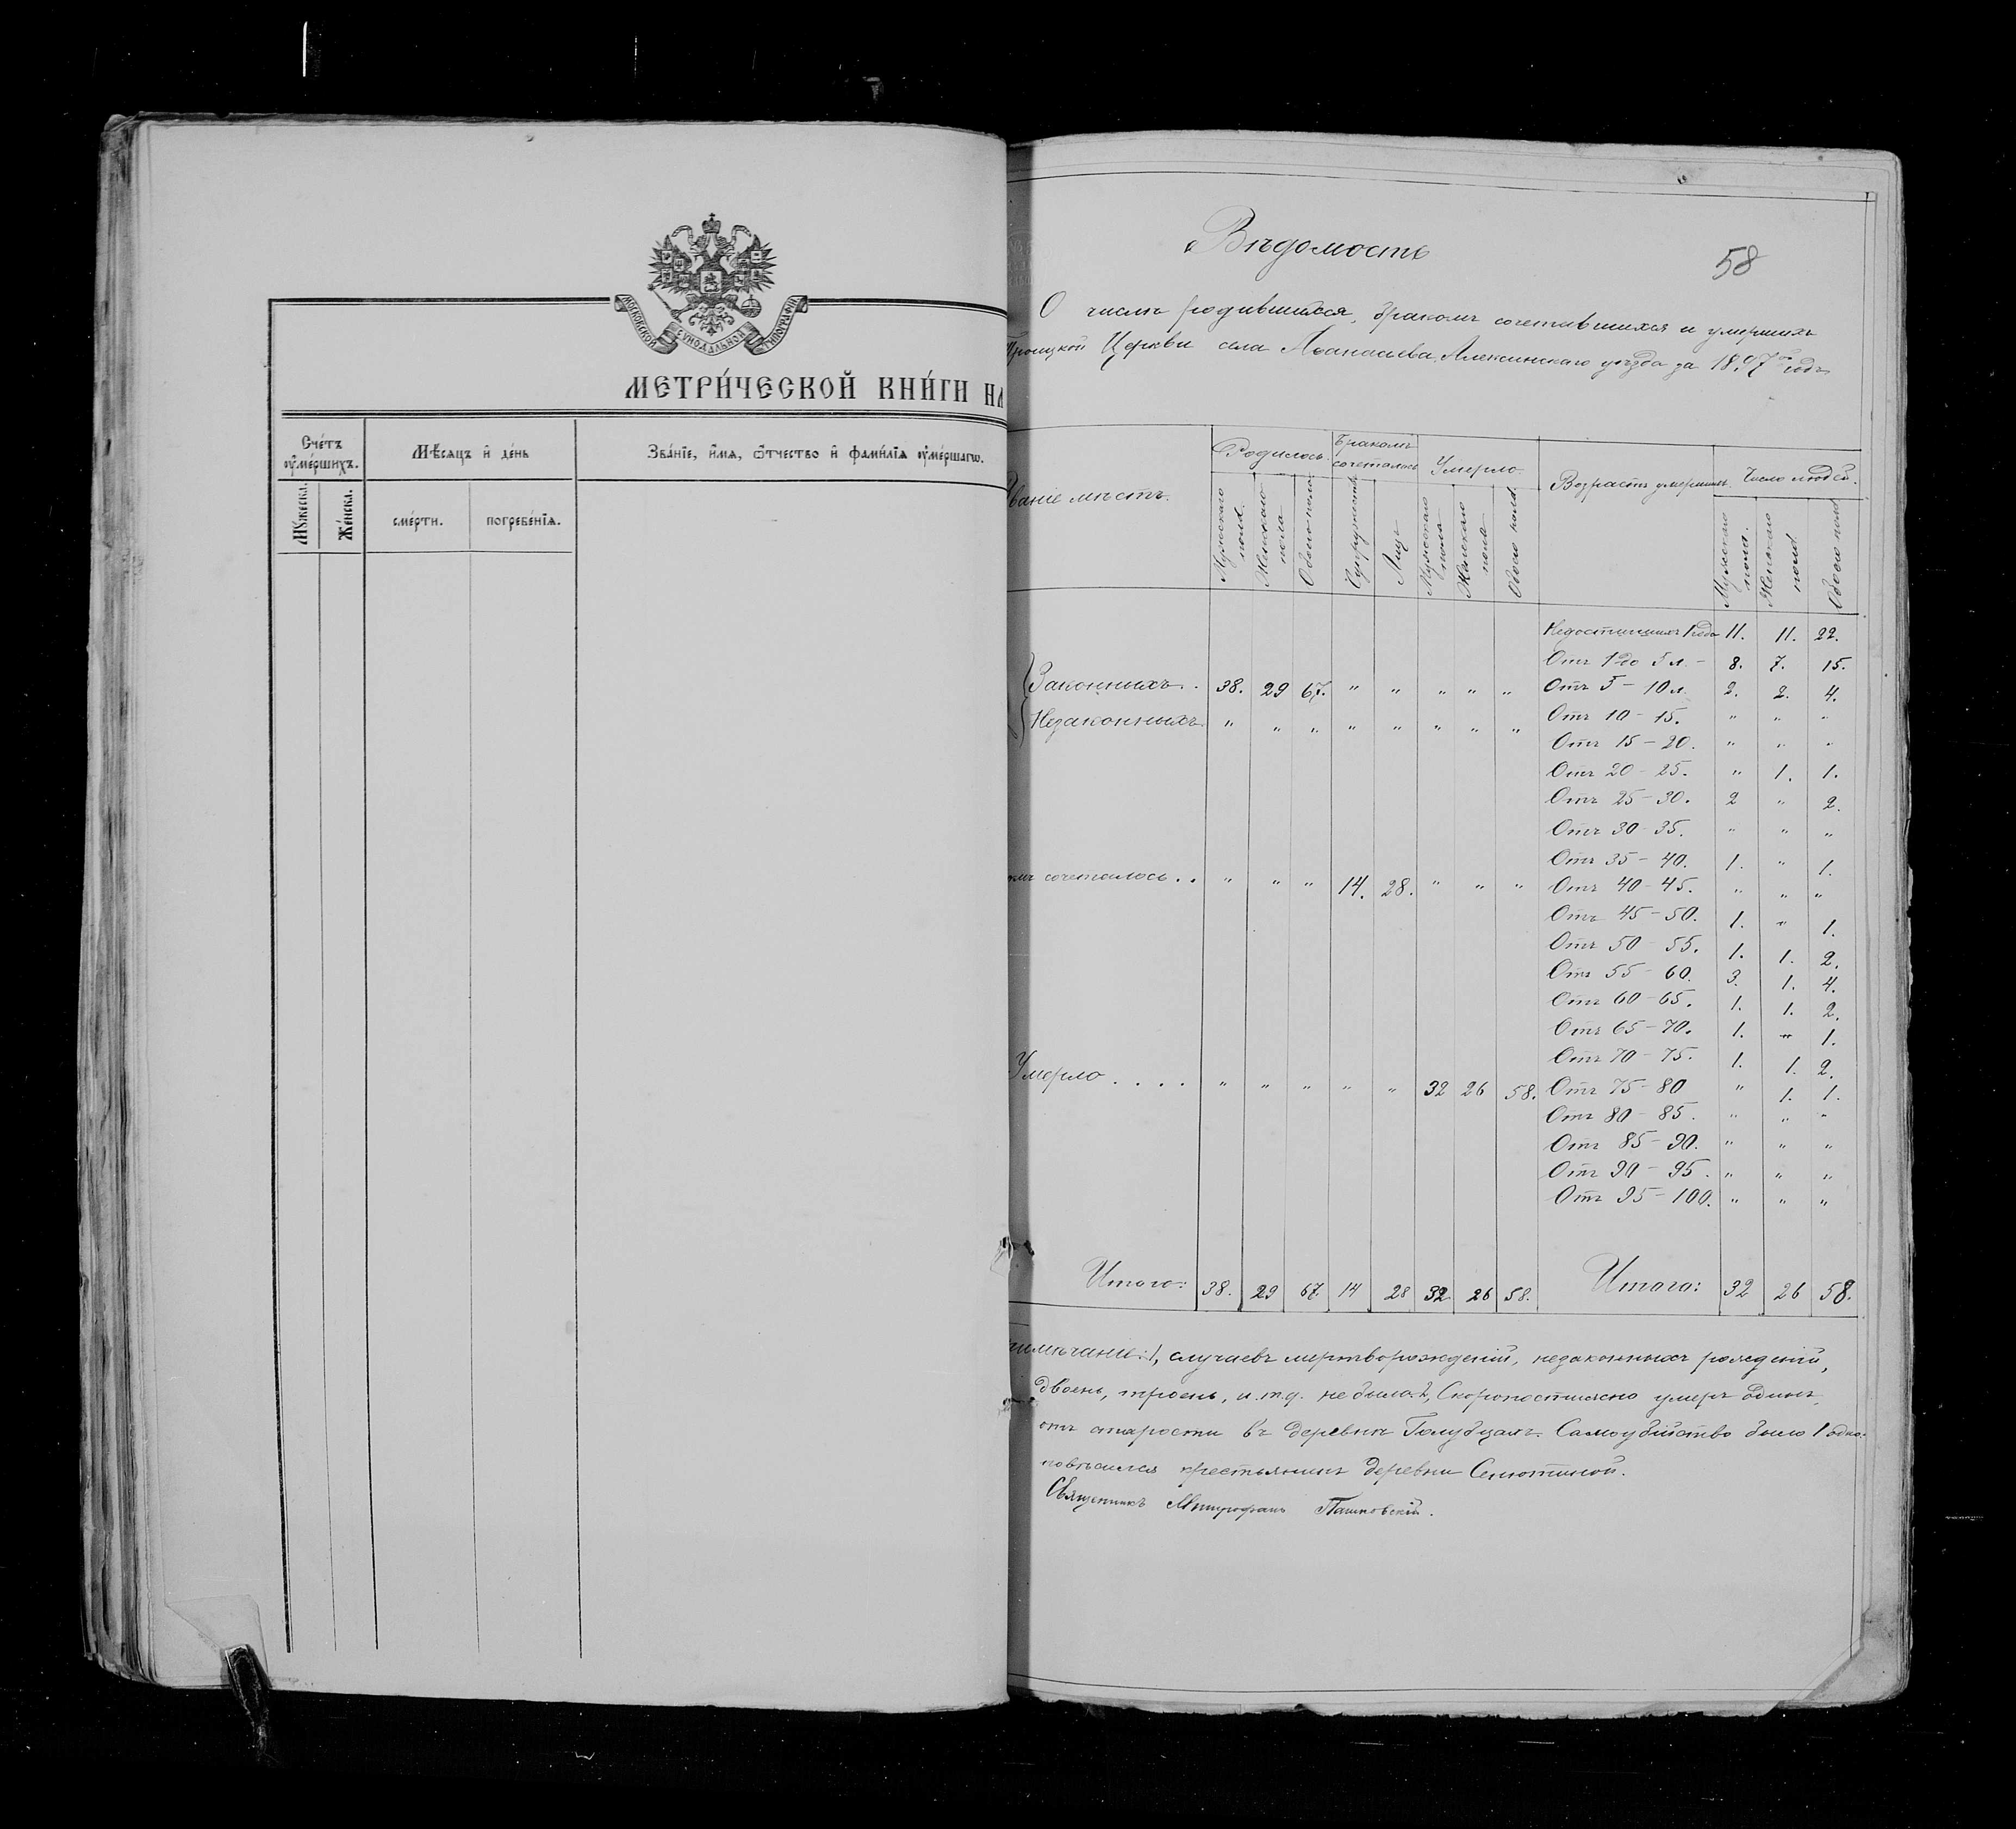 МОСКОВСКОЙ СѴНОДАЛЬНОЙ ТИПОГРАФІИ
МЕТРИ́ЧЕСКОЙ КНИ́ГИ НА
Сче́тъ ᲂу҆ме́ршихъ.
Мѣ́сяцъ и҆ де́нь
Зва́нїе, и҆́мѧ, ѻ҆́тчество и҆ фами́лїѧ ᲂу҆ме́ршагѡ.
Мꙋ́жеска.
Же́нска.
сме́рти.
погребе́нїѧ.
Вѣдомость
58
О числѣ родившихся, бракомъ сочетавшихся и умершихъ
Троицкой Церкви села Аѳанасьева, Алексинскаго уѣзда за 1897й годъ
званіе мѣстъ.
Родилось.
Бракомъ сочеталось
Умерло.
Возрастъ умершихъ.
Число людей.
Мужскаго пола.
Женскаго пола
Обоего пола
Супружествъ
Лицъ
Мужскаго пола
Женскаго пола
Обоего пола
Мужскаго пола.
Женскаго пола
Обоего пола
Недостигшихъ 1 года 11. 11. 22.
Отъ 1 до 5 л. - 8. 7. 15.
Законныхъ . 38. 29 67. " " " " " Отъ 5 - 10 л. 2. 2. 4.
Незаконныхъ. " " " " " " " " Отъ 10 - 15. " " "
Отъ 15 - 20. " " "
Отъ 20 - 25. " 1. 1.
Отъ 25 - 30. 2 " 2.
Отъ 30 - 35. " " "
Отъ 35 - 40. 1. " 1.
омъ сочеталось . . " " " 14. 28. " " " Отъ 40 - 45. " " "
Отъ 45 - 50. 1. " 1.
Отъ 50 - 55. 1. 1. 2.
Отъ 55 - 60. 3. 1. 4.
Отъ 60 - 65. 1. 1. 2.
Отъ 65 - 70. 1. " 1.
Отъ 70 - 75. 1. 1. 2.
Умерло . . . . " " " " " 32 26 58. Отъ 75 - 80 " 1. 1.
Отъ 80 - 85. " " "
Отъ 85 - 90. " " "
Отъ 90 - 95. " " "
Отъ 95 - 100. " " "
Итого: 38. 29 67. 14 28 32 26 58. Итого: 32 26 58.
имѣчаніе: 1, случаевъ мертворожденій, незаконныхъ рожденій,
двоень, троень, и. т. д. не было. 2, Скоропостижно умеръ одинъ
отъ старости въ деревнѣ Голубцахъ. Самоубійство было 1 одно:
повѣсился крестьянинъ деревни Селютиной.
Священникъ Митрофанъ Пашковскій.